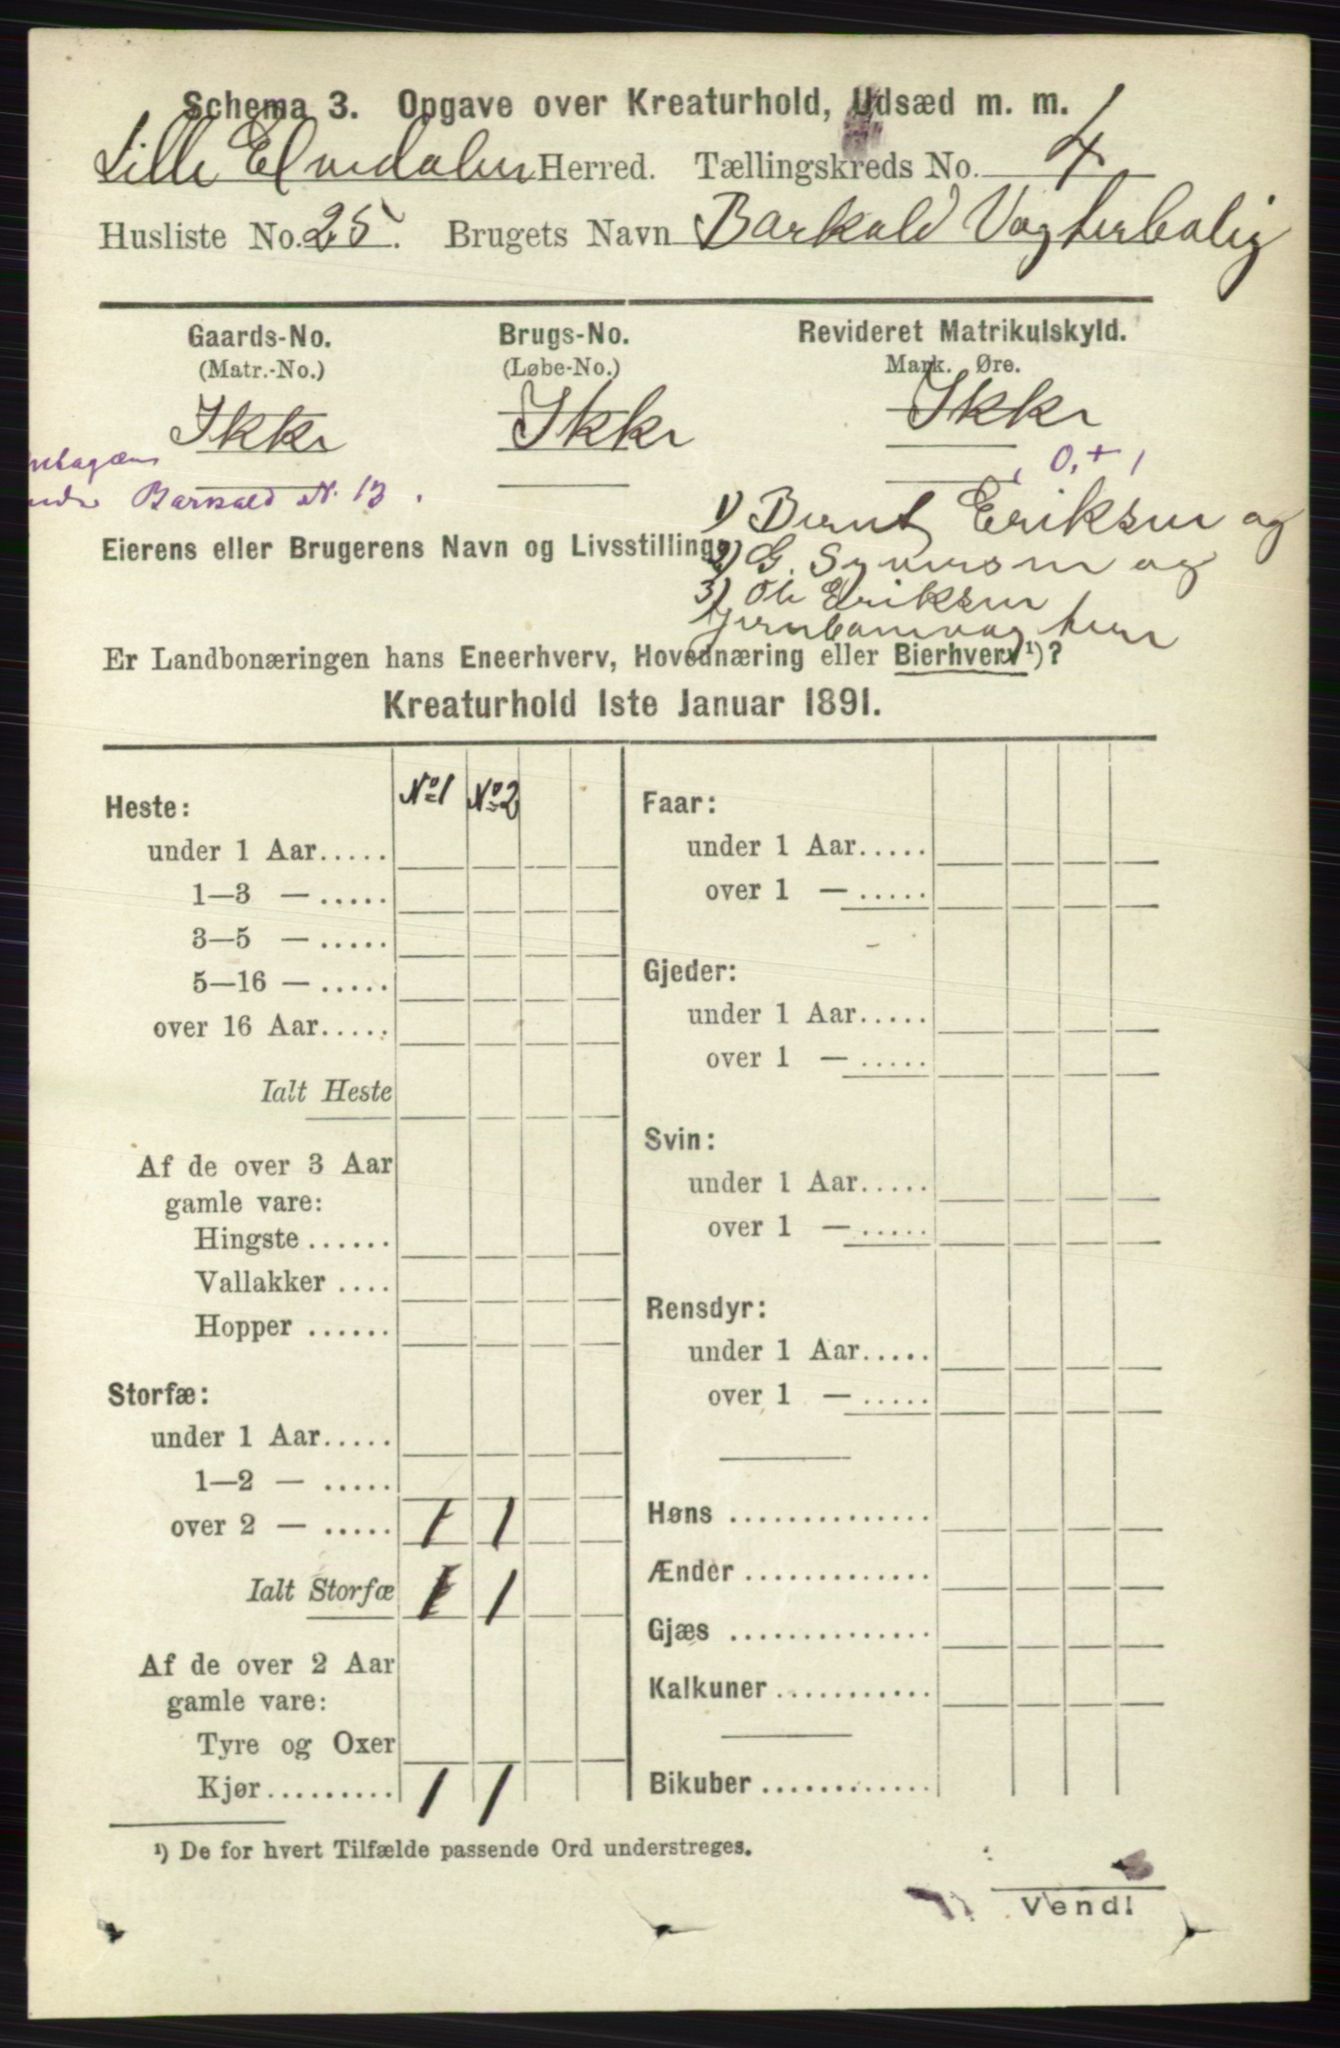 Schema 3. Opgave over Kreaturhold, Udsæd m. m.
Lille Elvedalen Herred. Tællingskreds No. 4
Husliste No. 25. Brugets Navn Barkald Vogterbolig
Gaards-No. Brugs-No. Revideret Matrikulskyld.
(Matr.-No.) (Løbe-No.) Mark. Øre.
Ikke Ikke Ikke
0, + 1
Barkald N. 13.
1) Bernt Eriksen og
Eierens eller Brugerens Navn og Livsstilling 2) G. Syversen og
3) Ole Eriksen
Jernbanevogtere
Er Landbonæringen hans Eneerhverv, Hovednæring eller Bierhverv¹)?
Kreaturhold 1ste Januar 1891.
No 1 No 2
Heste:
under 1 Aar.....
1—3 — .....
3—5 — .....
5—16 — .....
over 16 Aar.....
Ialt Heste
Af de over 3 Aar
gamle vare:
Hingste ......
Vallakker ....
Hopper ......
Storfæ:
under 1 Aar.....
1—2 — .....
over 2 — ..... 1 1
Ialt Storfæ 1 1
Af de over 2 Aar
gamle vare:
Tyre og Oxer
Kjør......... 1 1
Faar:
under 1 Aar.....
over 1 — .....
Gjeder:
under 1 Aar.....
over 1 — .....
Svin:
under 1 Aar.....
over 1 — .....
Rensdyr:
under 1 Aar.....
over 1 — .....
Høns ..............
Ænder .............
Gjæs ..............
Kalkuner ...........
Bikuber ............
¹) De for hvert Tilfælde passende Ord understreges.
Vend!